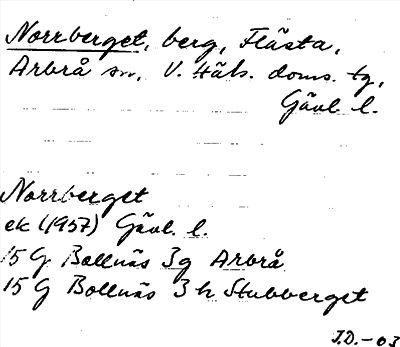 Norrberget, berg, Flästa,
Arbrå sn, V. Häls. doms. tg,
Gävl. l.
Norrberget
ek (1957) Gävl. l.
15 G Bollnäs 3g Arbrå
15 G Bollnäs 3h Stubberget
J.D.-03